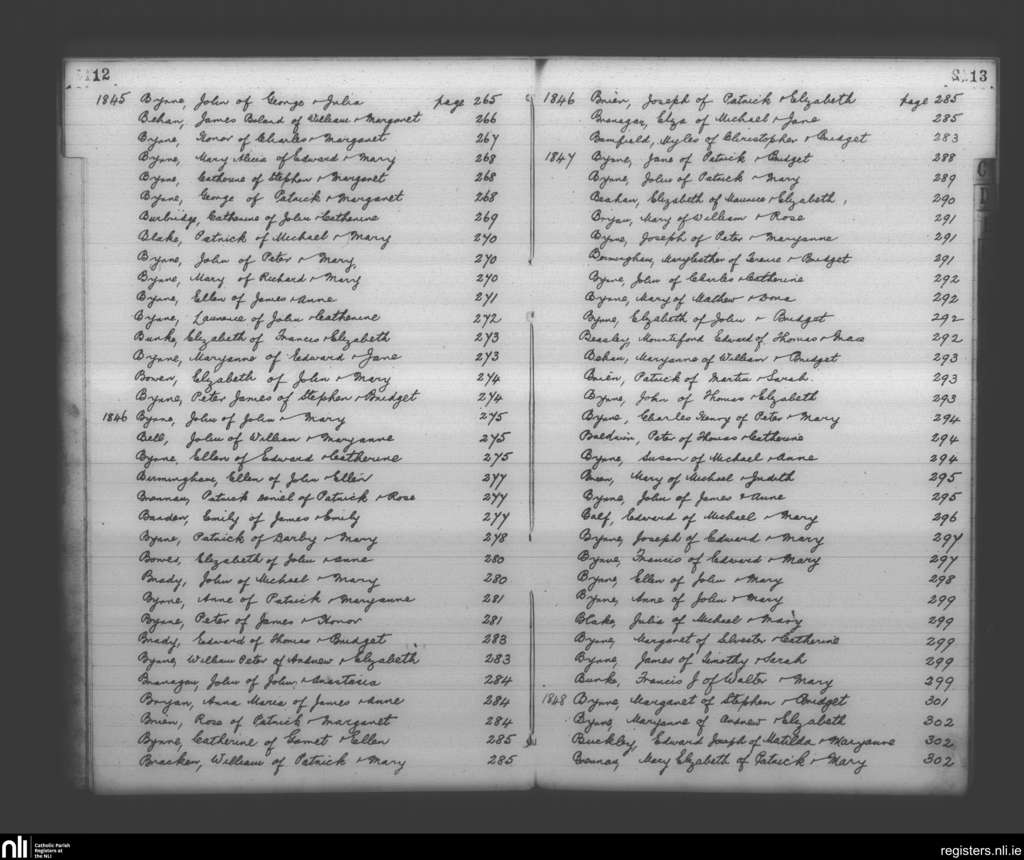 12
1845 Byrne, John of George & Julia page 265
Behan, James Boland of William & Margaret 266
Byrne, Honor of Charles & Margaret 267
Byrne, Mary Alicia of Edward & Mary 268
Byrne, Catherine of Stephen & Margaret 268
Byrne, George of Patrick & Margaret 268
Burbridge, Catherine of John & Catherine 269
Blake, Patrick of Michael & Mary 270
Byrne, John of Peter & Mary, 270
Byrne, Mary of Richard & Mary 270
Byrne, Ellen of James & Anne 271
Byrne, Laurence of John & Catherine 272
Burke, Elizabeth of Francis & Elizabeth 273
Byrne, Maryanne of Edward & Jane 273
Bowen, Elizabeth of John & Mary 274
Byrne, Peter James of Stephen & Bridget 274
1846 Byrne, John of John & Mary 275
Bell, John of William & Maryanne 275
Byrne, Ellen of Edward & Catherine 275
Birmingham, Ellen of John & Ellen 277
Brennan, Patrick Daniel of Patrick & Rose 277
Baaden, Emily of James & Emily 277
Byrne, Patrick of Darby & Mary 278
Bowes, Elizabeth of John & Anne 280
Brady, John of Michael & Mary 280
Byrne, Anne of Patrick & Maryanne 281
Byrne, Peter of James & Honor 281
Brady, Edward of Thomas & Bridget 283
Byrne, William Peter of Andrew & Elizabeth 283
Branagan, John of John & Anastasia 284
Bryan, Anna Maria of James & Anne 284
Brien, Rose of Patrick & Margaret 284
Byrne, Catherine of Garnet & Ellen 285
Bracken, William of Patrick & Mary 285
13
1846 Brien, Joseph of Patrick & Elizabeth page 285
Branagan, Eliza of Michael & Jane 285
Bamfield, Myles of Christopher & Bridget 283
1847 Byrne, Jane of Patrick & Bridget 288
Byrne, John of Patrick & Mary 289
Beahan, Elizabeth of Maurice & Elizabeth, 290
Bryan, Mary of William & Rose 291
Byrne, Joseph of Peter & Maryanne 291
Bermingham, Mary Esther of Terence & Bridget 291
Byrne, John of Charles & Catherine 292
Byrne, Mary of Mathew & Dora 292
Byrne, Elizabeth of John & Bridget 292
Beasley, Mountiford Edward of Thomas & 292
Behan, Maryanne of William & Bridget 293
Brien, Patrick of Martin & Sarah. 293
Byrne, John of Thomas & Elizabeth 293
Byrne, Charles Henry of Peter & Mary 294
Baldwin, Peter of Thomas & Catherine 294
Byrne, Susan of Michael & Anne 294
Breen, Mary of Michael & Judith 295
Byrne, John of James & Anne 295
Balf, Edward of Michael & Mary 296
Byrne, Joseph of Edward & Mary 297
Byrne, Francis of Edward & Mary 297
Byrne, Ellen of John & Mary 298
Byrne, Anne of John & Mary 299
Blake, Julia of Michael & Mary 299
Byrne, Margaret of Silvester & Catherine 299
Byrne, James of Timothy & Sarah 299
Burke, Francis J of Walter & Mary 299
1848 Byrne, Margaret of Stephen & Bridget 301
Byrne, Maryanne of Andrew & Elizabeth 302
Buckley, Edward Joseph of Matilda & Maryanne 302
Brennan, Mary Elizabeth of Patrick & Mary 302
C
D
nli Catholic Parish
Registers at
the NLI
registers.nli.ie